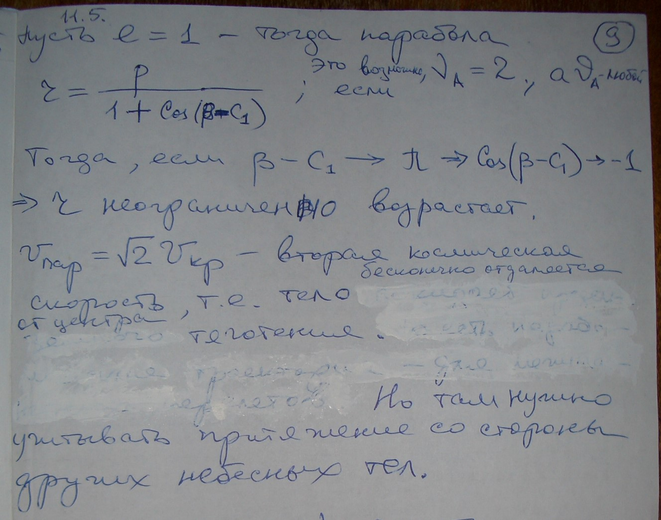 11.5.
9
пусть e = 1 – тогда парабола
r = p / (1 + Cos(β-C₁)) ; это возможно, если ν_A = 2, а ϑ_A – любой
Тогда, если β – C₁ → π ⇒ Cos(β-C₁) → -1
⇒ r неограниченно возрастает.
v_пар = √2 v_кр – вторая космическая
скорость, т.е. тело бесконечно отдаляется
от центра тяготения.
Но там нужно
учитывать притяжение со стороны
других небесных тел.